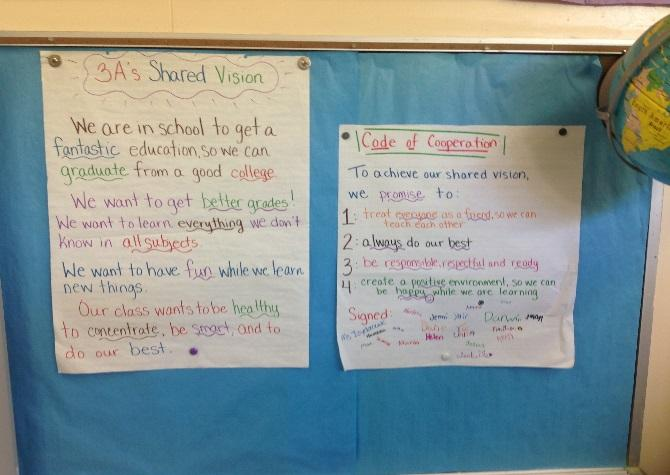 3A's Shared Vision
We are in school to get a
fantastic education, so we can
graduate from a good college
We want to get better grades!
We want to learn everything we don't
know in all subjects
We want to have fun while we learn
new things.
Our class wants to be healthy
to concentrate, be smart, and to
do our best.
Code of Cooperation
To achieve our shared vision,
we promise to:
1: treat everyone as a friend, so we can
teach each other
2: always do our best
3: be responsible, respectful and ready
4: create a positive environment, so we can
be happy while we are learning
Signed:
Jenni
Darwin
Helen